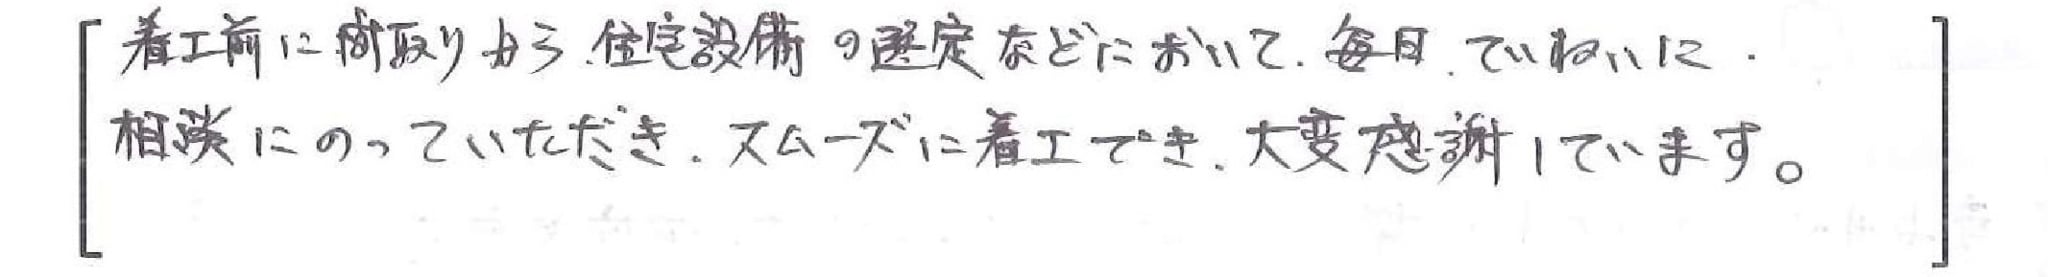 着工前に間取りから、住宅設備の選定などにおいて、毎日、ていねいに、
相談にのっていただき、スムーズに着工でき、大変感謝しています。